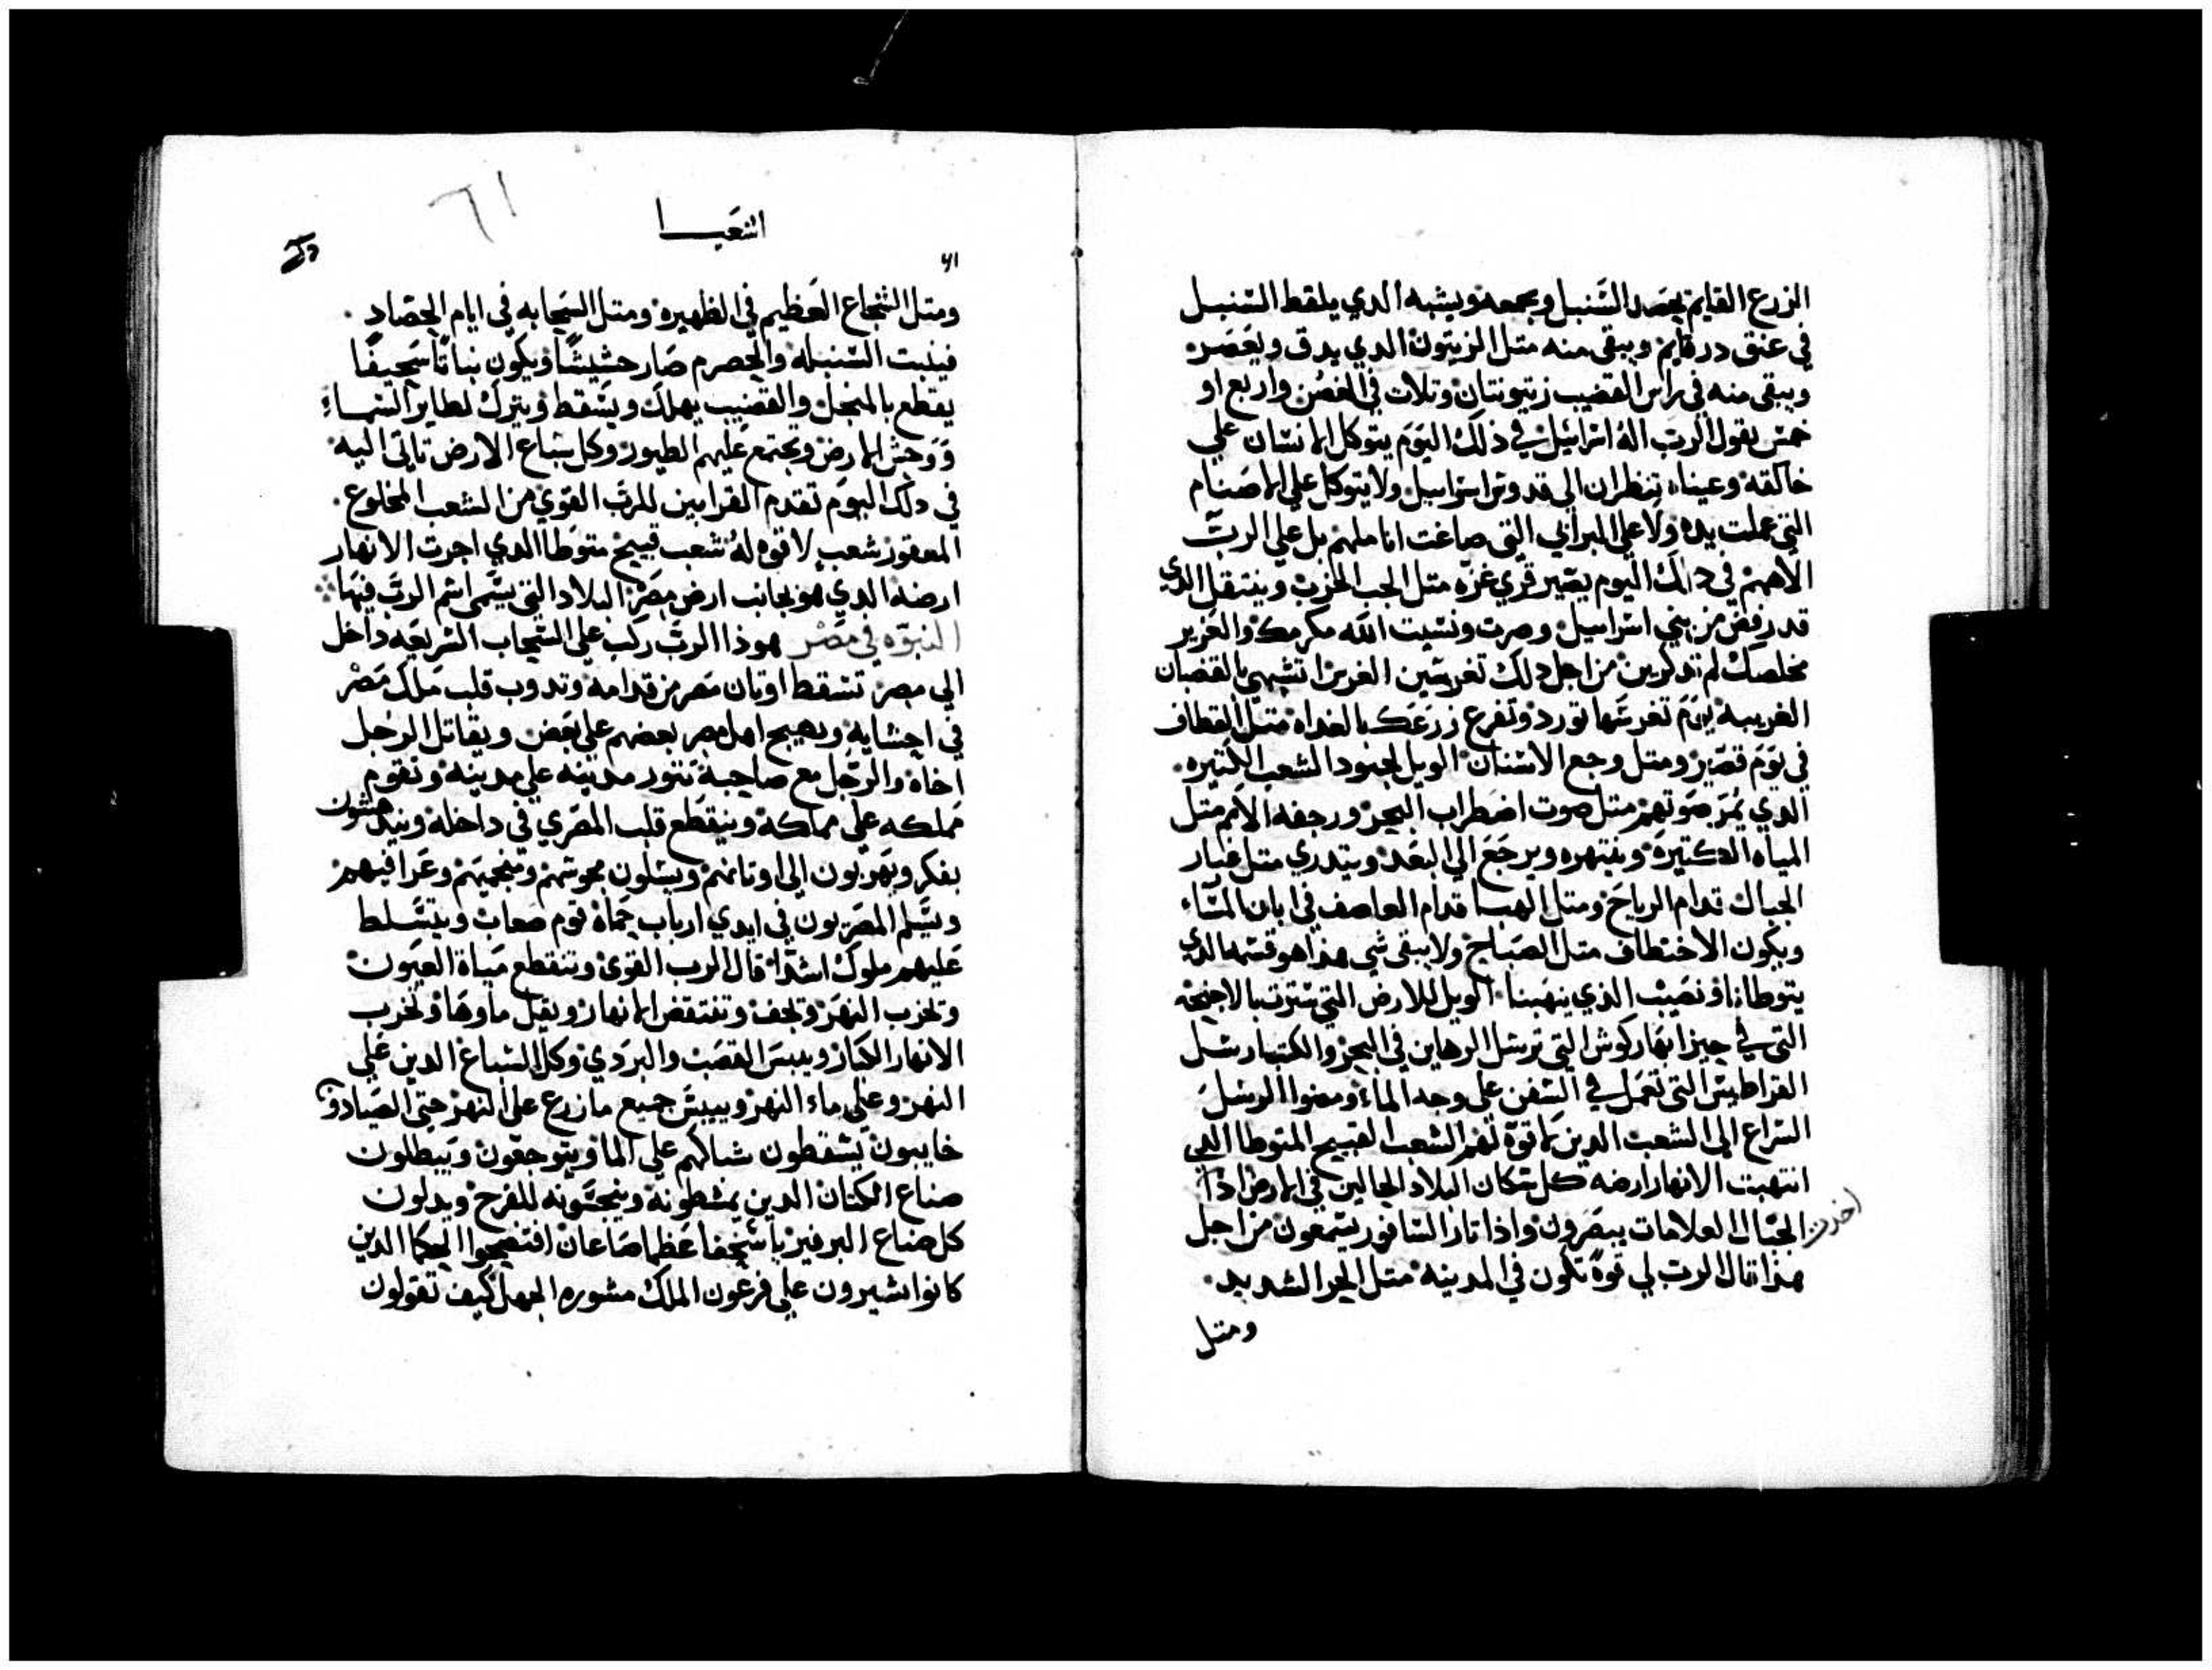 الزرع القايم يحصد السنبل ويجمعه ويشبه الدي يلقط السنبل
في عنق درقايم ويبقى منه متل الزيتون الدي يدق ويعصر
ويبقى منه في راس القضيب زيتونتان وتلات في الغصن واربع او
خمس يقول الرب اله اسراييل في ذلك اليوم يتوكل الانسان علي
خالقه وعيناه تنظران الى قدوس اسراييل ولا يتوكل علي الاصنام
التي عملت يده ولا علي البراني التي صاغت اناملهم بل علي الرب
الاههم في دلك اليوم يصير قري غزه متل الجب الخرب وينتقل الدي
قد رفض من بني اسراييل وصرت ونسيت الله مكرمك والعزيز
مخلصك لم تدكرين من اجل دلك تغرسين الغرس اتشهي بالقضبان
الغريبه يوم تغرسها تورد وتفرع زرعك بالغداه متل القطاف
في يوم قصير ومتل وجع الاسنان الويل لجنود الشعب الكتيره
الدي يمر صوتهم متل صوت اضطراب البحر ورجفه الامم متل
المياه الكتيرة وينتهره ويرجع الي البعد ويتدري متل غبار
الجبال قدام الرياح ومتل الهبا قدام العاصف في ابان المساء
ويكون الاختطاف متل الصباح ولا يبقى شي هذا هو قسمة الدي
يتوطانا ونصيب الذي ينهبنا الويل للارض التي سترت بالاجنحة
التي في حيز انهار كوش التي ترسل الرهاين في البحر والكتبا رسل
القراطيس التي تعمل في السفن على وجه الماء ومضوا الرسل
السراع الى الشعب الدين لا قوة لهم الشعب القبيح المتوطا الدي
انتهبت الانهار ارضه كل سكان البلاد الجالين في الارض اذا
اخدت
الجبال العلامات يبصرون واذا تار السافور يسمعون من اجل
هذا قال الرب لي قوة تكون في المدينه متل الحر الشديد
ومتل
٦١
اشعيا
٦١
ومتل الشجاع العظيم في الظهيره ومتل السحابه في ايام الحصاد
فينبت السنبله والحصرم صار حشيشًا ويكون نباتًا سحيفًا
يقطع بالمنجل والقضيب يهلك ويسقط ويترك لطاير السماء
ووحش الارض ويجتمع عليهم الطيور وكل سباع الارض تاتي اليه
في دلك اليوم تقدم القرابين للرب القوي من الشعب المخلوع
المعقور شعب لا قوه له شعب قبيح متوطا الدي اجرت الانهار
ارضه الدي هو بجانب ارض مصر البلاد التي يسمى اسم الرب فيها
النبوه في مصر هوذا الرب ركب على السحاب السريعه داخل
الى مصر تسقط اوتان مصر من قدامه وتدوب قلب ملك مصر
في احشايه ويهيج اهل مصر بعضهم على بعض ويقاتل الرجل
اخاه والرجل مع صاحبه تتور مدينه علي مدينه وتقوم
مملكه على مملكه وينقطع قلب المصري في داخله ويندهشون
بفكر ويهربون الى اوتانهم ويسلون مجوسهم ومنجميهم وعرافيهم
ويسلم المصريون في ايدي ارباب جماه قوم صعاب ويتسلط
عليهم ملوك اشدا قال الرب القوى وتنقطع مياة العيون
وتخرب النهر وتجف وتنتقض الانهار ويقل ماوها وتخرب
الانهار الكبار وييبس القصب والبردي وكل السباع الدين علي
النهر وعلي ماء النهر وييبس جميع ما زرع على النهر حتى الصيادون
خايبون يسقطون شباكهم علي الما ويتوجعون ويبطلون
صناع الكتان الدين يمشطونه وينجسونه للفرح ويدلون
كل صناع البرفير باسخفا عظما صاعان افتضحوا الحكما الدين
كانوا يشيرون علي فرعون الملك مشوره الجهل كيف تقولون